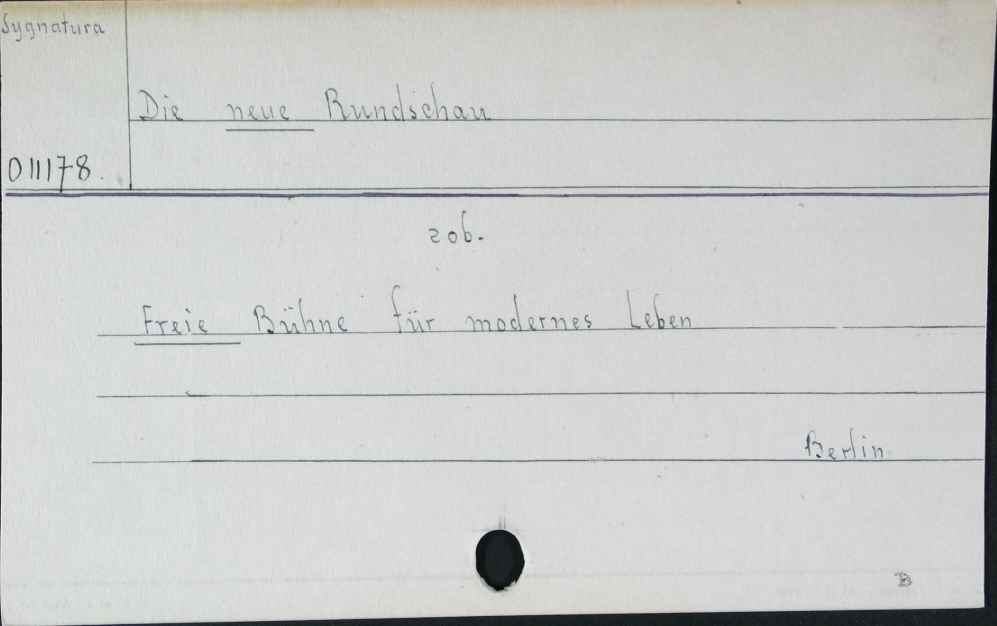 Sygnatura
Die neue Rundschau
011178.
zob.
Freie Bühne für modernes Leben
Berlin
B